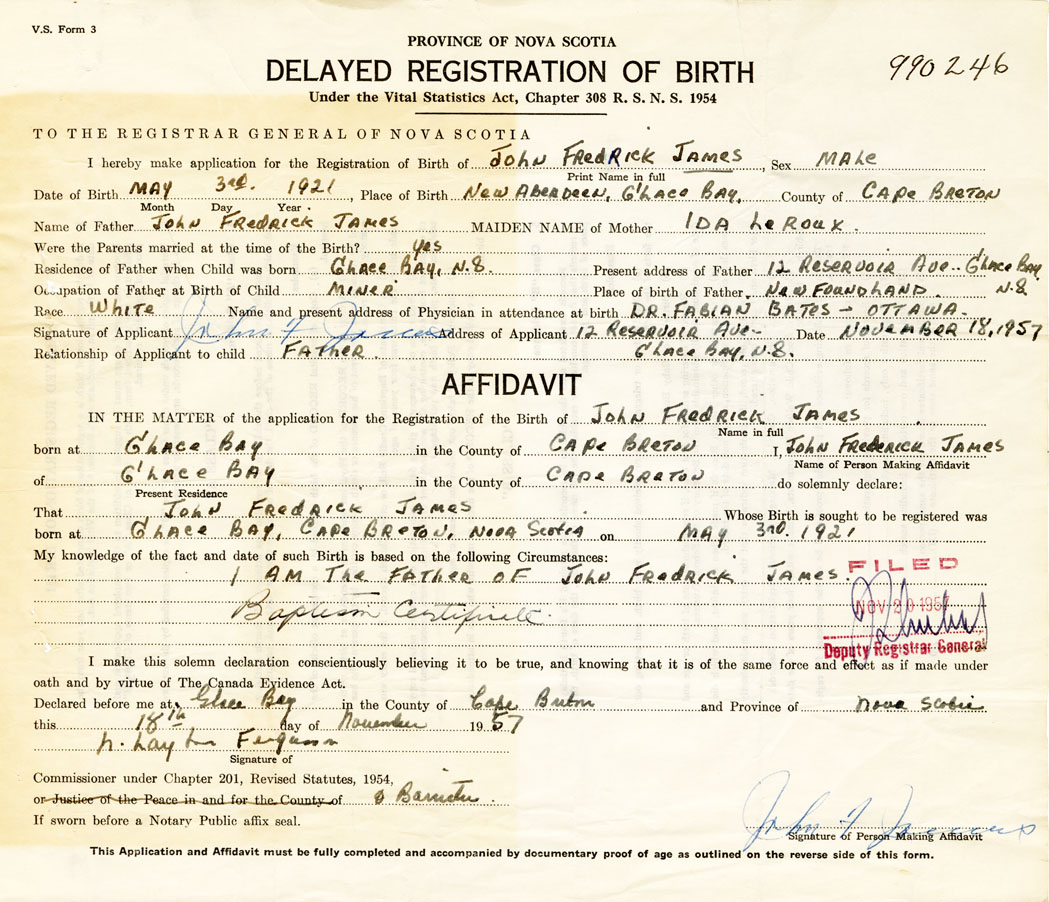 V.S. Form 3
PROVINCE OF NOVA SCOTIA
DELAYED REGISTRATION OF BIRTH
990246
Under the Vital Statistics Act, Chapter 308 R. S. N. S. 1954
TO THE REGISTRAR GENERAL OF NOVA SCOTIA
I hereby make application for the Registration of Birth of John Fredrick James, Sex Male
Print Name in full
Date of Birth May 3rd. 1921, Place of Birth New Aberdeen, G'lace Bay, County of Cape Breton
Month Day Year
Name of Father John Fredrick James MAIDEN NAME of Mother Ida LeRoux.
Were the Parents married at the time of the Birth? yes
Residence of Father when Child was born G'lace Bay, N.S. Present address of Father 12 Reservoir Ave.. G'lace Bay
Occupation of Father at Birth of Child Miner Place of birth of Father New Foundland. N.S
Race White Name and present address of Physician in attendance at birth Dr. Fabian Bates - Ottawa.
Signature of Applicant John F James Address of Applicant 12 Reservoir Ave- Date November 18, 1957
Relationship of Applicant to child Father. G'lace Bay, N.S.
AFFIDAVIT
IN THE MATTER of the application for the Registration of the Birth of John Fredrick James
Name in full
born at G'lace Bay in the County of Cape Breton I, John Frederick James
Name of Person Making Affidavit
of G'lace Bay in the County of Cape Breton do solemnly declare:
Present Residence
That John Fredrick James Whose Birth is sought to be registered was
born at G'lace Bay, Cape Breton, Nova Scotia on May 3rd. 1921
My knowledge of the fact and date of such Birth is based on the following Circumstances:
I am the Father of John Fredrick James.
FILED
Baptism Certificate.
NOV 20 1957
Deputy Registrar General
I make this solemn declaration conscientiously believing it to be true, and knowing that it is of the same force and effect as if made under
oath and by virtue of The Canada Evidence Act.
Declared before me at Glace Bay in the County of Cape Breton and Province of Nova Scotia
this 18th day of November 1957
N. Layton Ferguson
Signature of
Commissioner under Chapter 201, Revised Statutes, 1954,
or Justice of the Peace in and for the County of a Barrister.
If sworn before a Notary Public affix seal.
John F James
Signature of Person Making Affidavit
This Application and Affidavit must be fully completed and accompanied by documentary proof of age as outlined on the reverse side of this form.